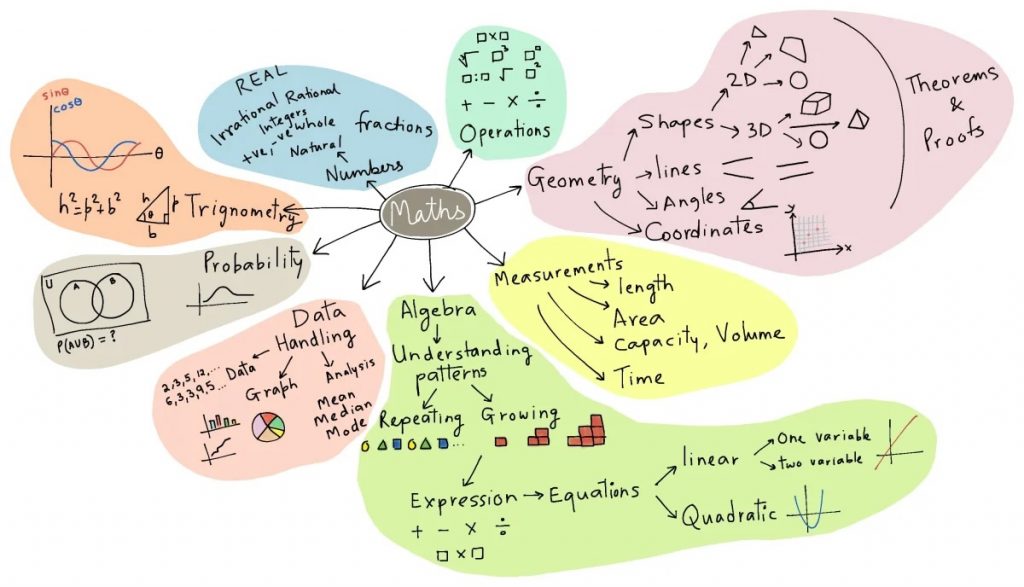 Maths
REAL
Irrational Rational
Integers
+ve, -ve whole
Natural
fractions
Numbers
□×□
√ □³ □°
□:□ √ □²
+ − × ÷
Operations
Geometry
Shapes
2D
3D
lines
Angles
Coordinates
y
x
Theorems
&
Proofs
Measurements
length
Area
Capacity, Volume
Time
Algebra
Understanding
patterns
Repeating
Growing
...
Expression
+ − × ÷
□ × □
Equations
linear
One variable
two variable
Quadratic
Data
Handling
Data
2,3,5,12,...
6,3,3,9,5...
Graph
Analysis
Mean
Median
Mode
Probability
U
A
B
P(AUB) = ?
Trignometry
sinθ
cosθ
θ
h² = p² + b²
h
p
θ
b